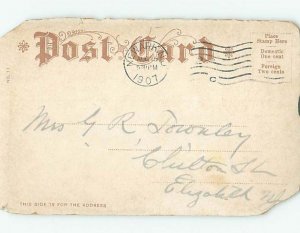 Post Card
Place
Stamp Here
Domestic
One cent
Foreign
Two cents
NEWARK
1907
C
Mrs G R Townley
Chilton St
Elizabeth NJ
THIS SIDE IS FOR THE ADDRESS